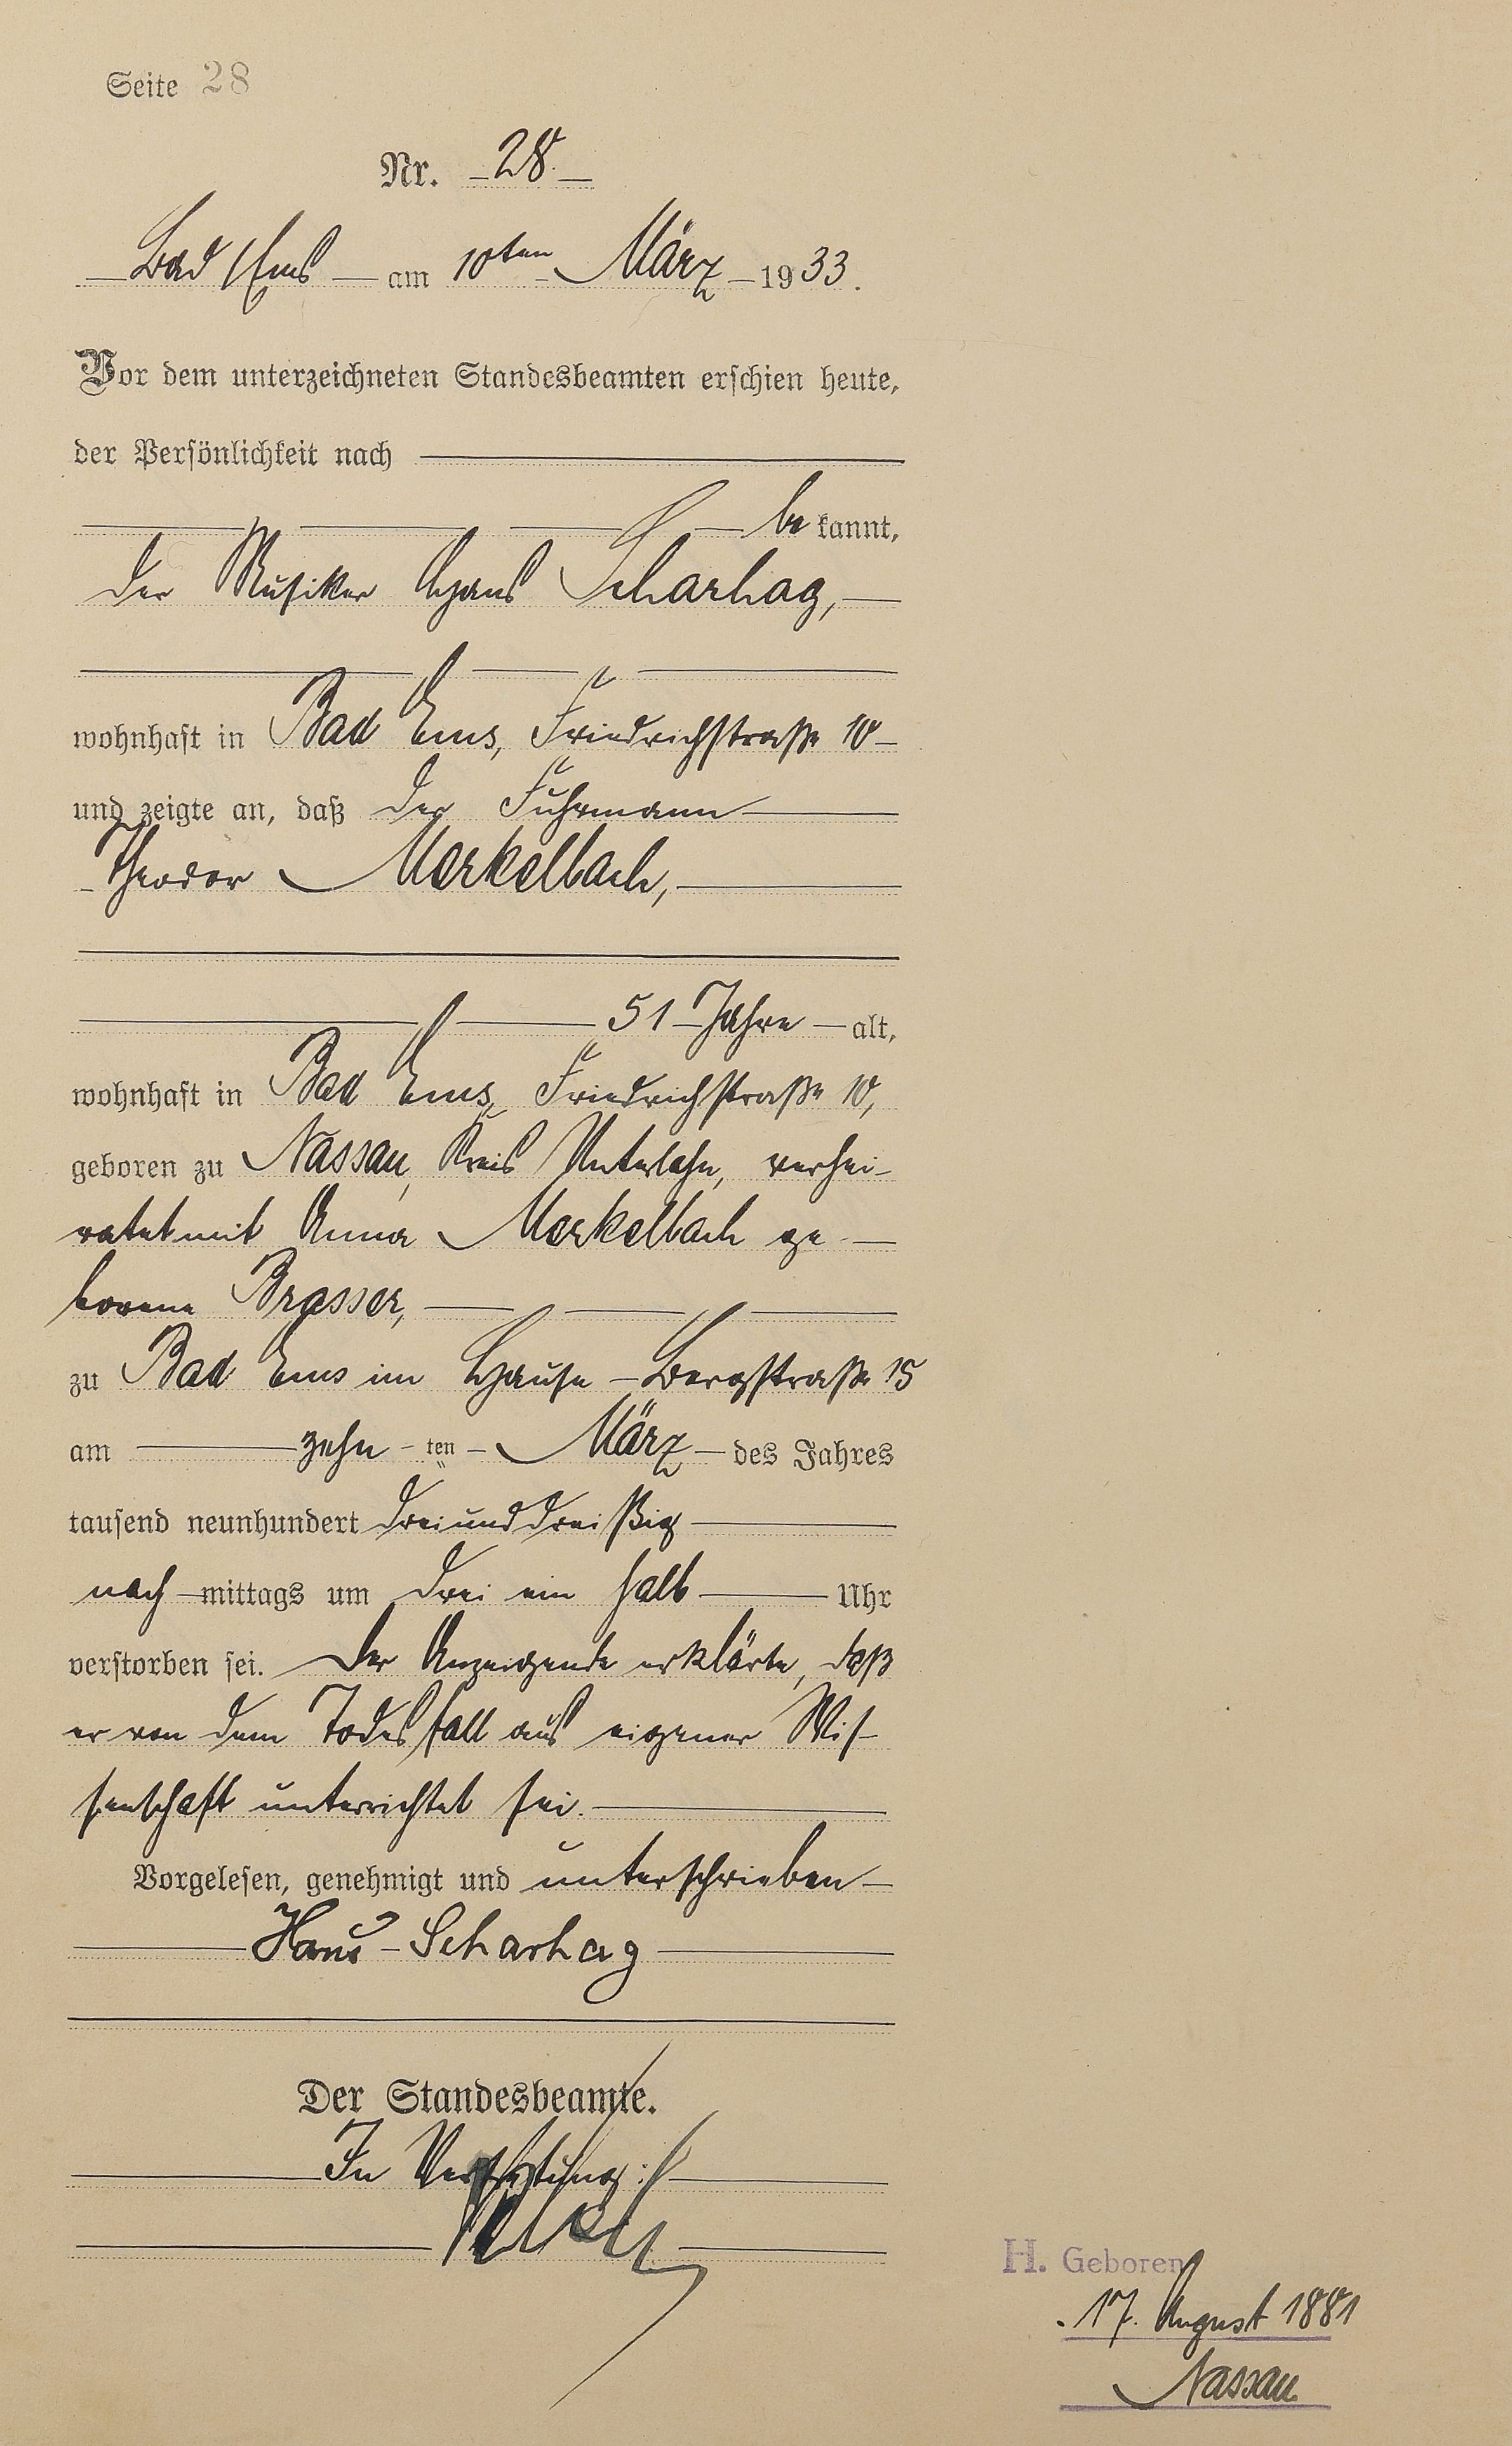 Seite 28
Nr. 28.
Bad Ems am 10ten März 1933.
Vor dem unterzeichneten Standesbeamten erschien heute,
der Persönlichkeit nach
bekannt,
der Musiker Hans Scharhag,
wohnhaft in Bad Ems, Friedrichstraße 10
und zeigte an, daß der Fuhrmann
Theodor Merkelbach,
51 Jahre alt,
wohnhaft in Bad Ems, Friedrichstraße 10,
geboren zu Nassau, Kreis Unterlahn, verhei-
ratet mit Anna Merkelbach ge-
borene Brasser,
zu Bad Ems im Hause Bergstraße 15
am zehn ten März des Jahres
tausend neunhundert dreiunddreißig
nach mittags um drei ein halb Uhr
verstorben sei. Der Anzeigende erklärte, daß
er von dem Todesfall aus eigener Wis-
senschaft unterrichtet sei.
Vorgelesen, genehmigt und unterschrieben
Hans Scharhag
Der Standesbeamte.
In Vertretung:
H. Geboren
17. August 1881
Nassau